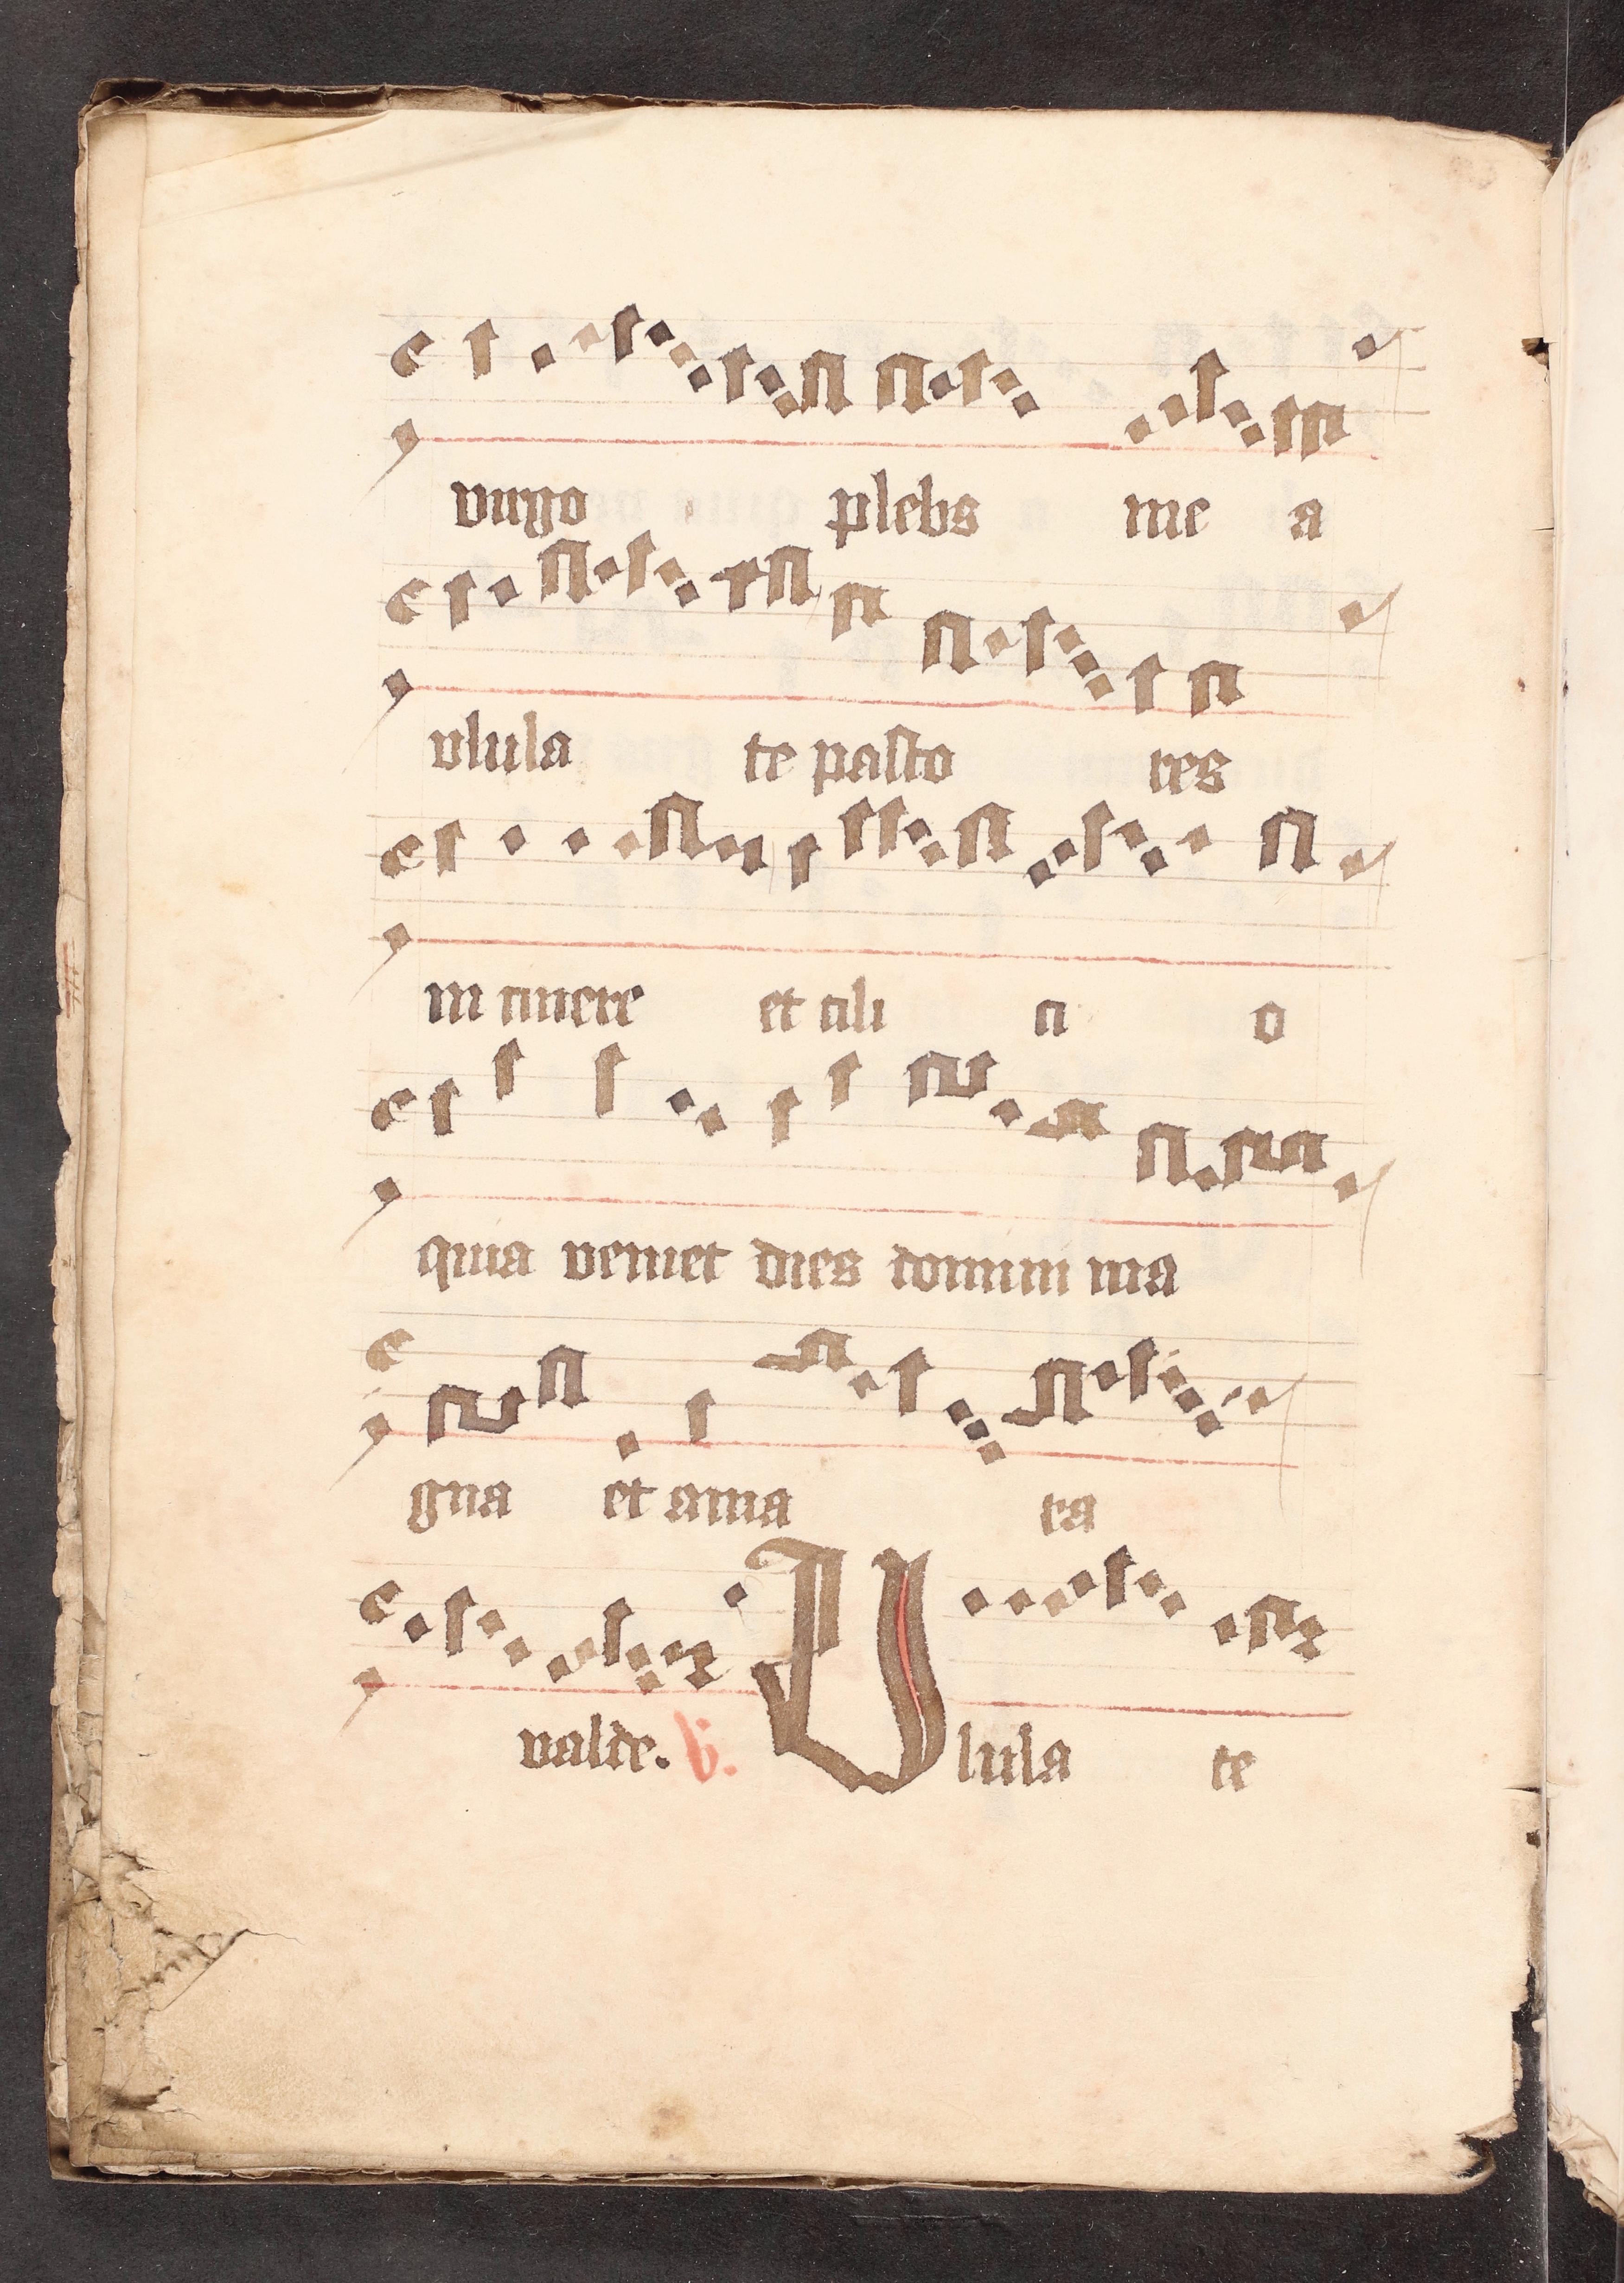 virgo plebs me a
vlula te pasto res
in cinere et cili ci o
quia veniet dies domini ma
gna et ama ra
valde. V. Ulula te